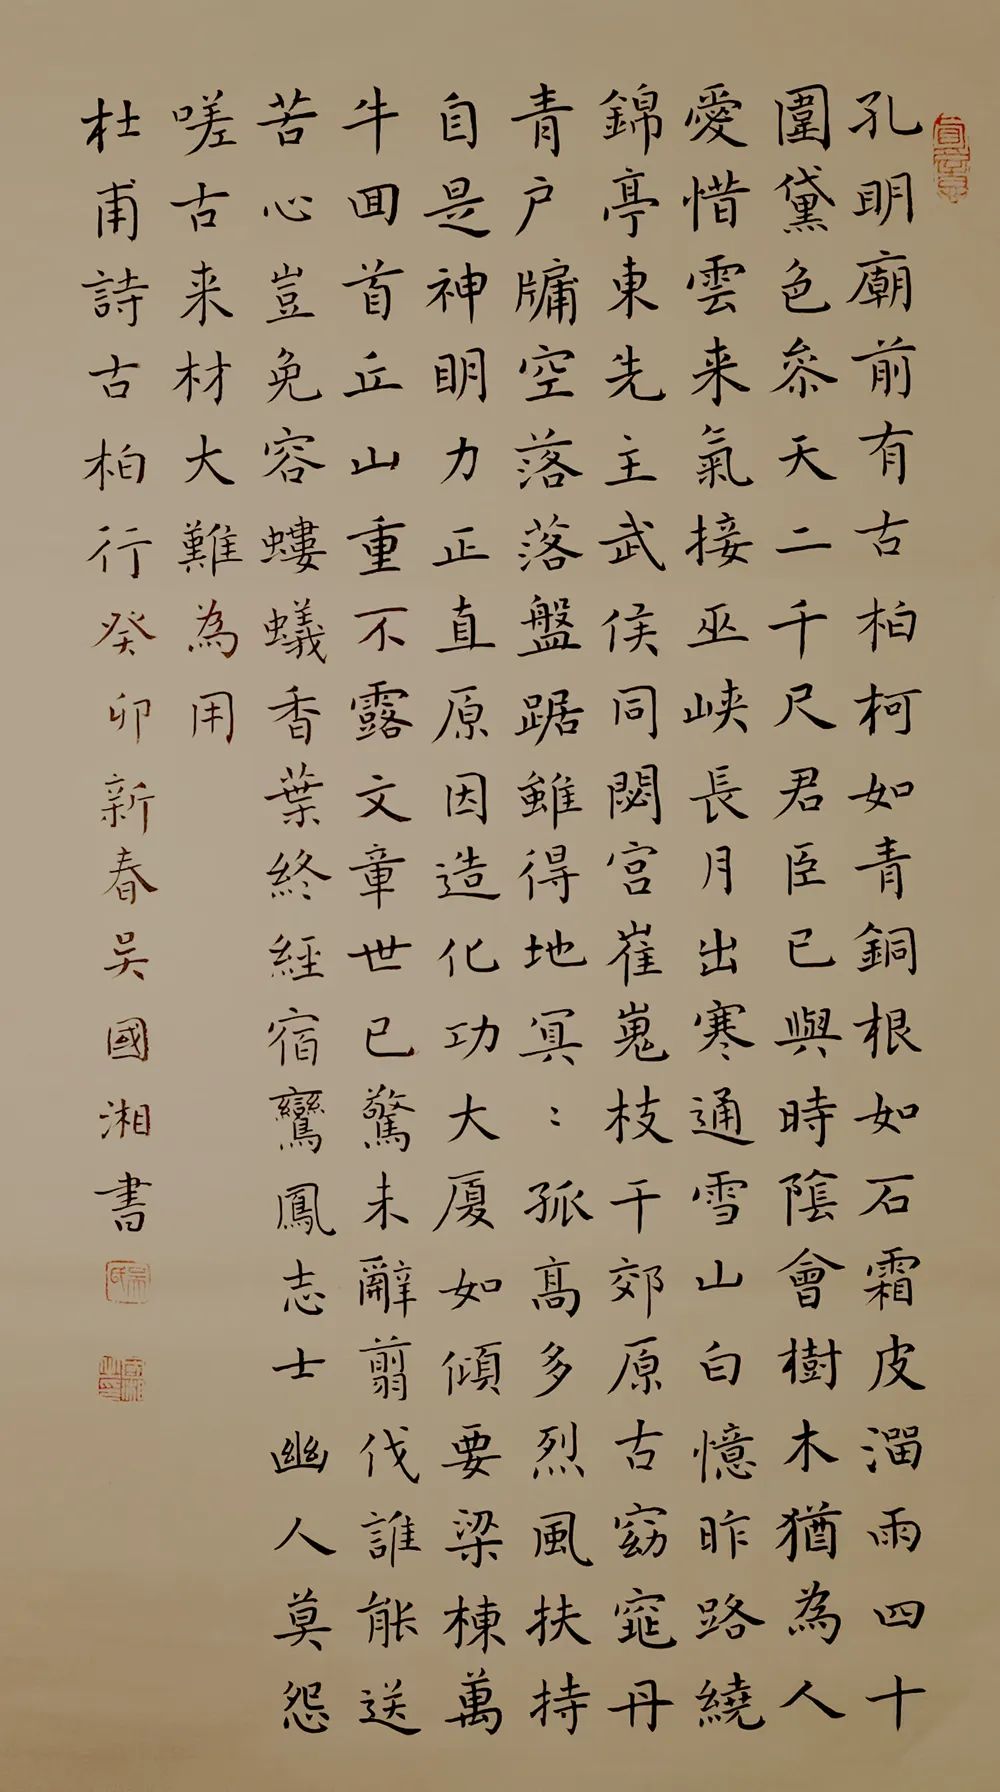 孔明廟前有古柏柯如青銅根如石霜皮溜雨四十
圍黛色叅天二千尺君臣已與時陰會樹木猶為人
愛惜雲来氣接巫峡長月出寒通雪山白憶昨路繞
錦亭東先主武侯同閟宮崔嵬枝干郊原古窈窕丹
青户牗空落落盤踞雖得地冥〻孤高多烈風扶持
自是神明力正直原因造化功大厦如傾要梁棟萬
牛回首丘山重不露文章世已驚未辭翦伐誰能送
苦心豈免容螻蟻香葉終經宿鸞鳳志士幽人莫怨
嗟古来材大難為用
杜甫詩古柏行癸卯新春吴國湘書